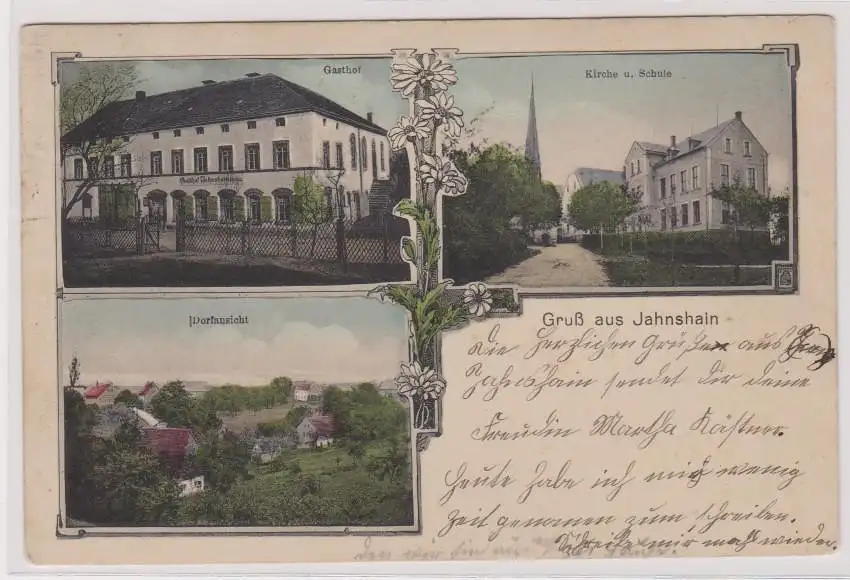 Gasthof
Kirche u. Schule
Gasthof Jahnshain
Dorfansicht
Gruß aus Jahnshain
Die Herzlichen Grüßen aus
Jahnshain sendet dir deine
Freudin Martha Kästner.
Heute habe ich mir wenig
Zeit genomen zum schreiben.
Schreibe mir mahl wieder.